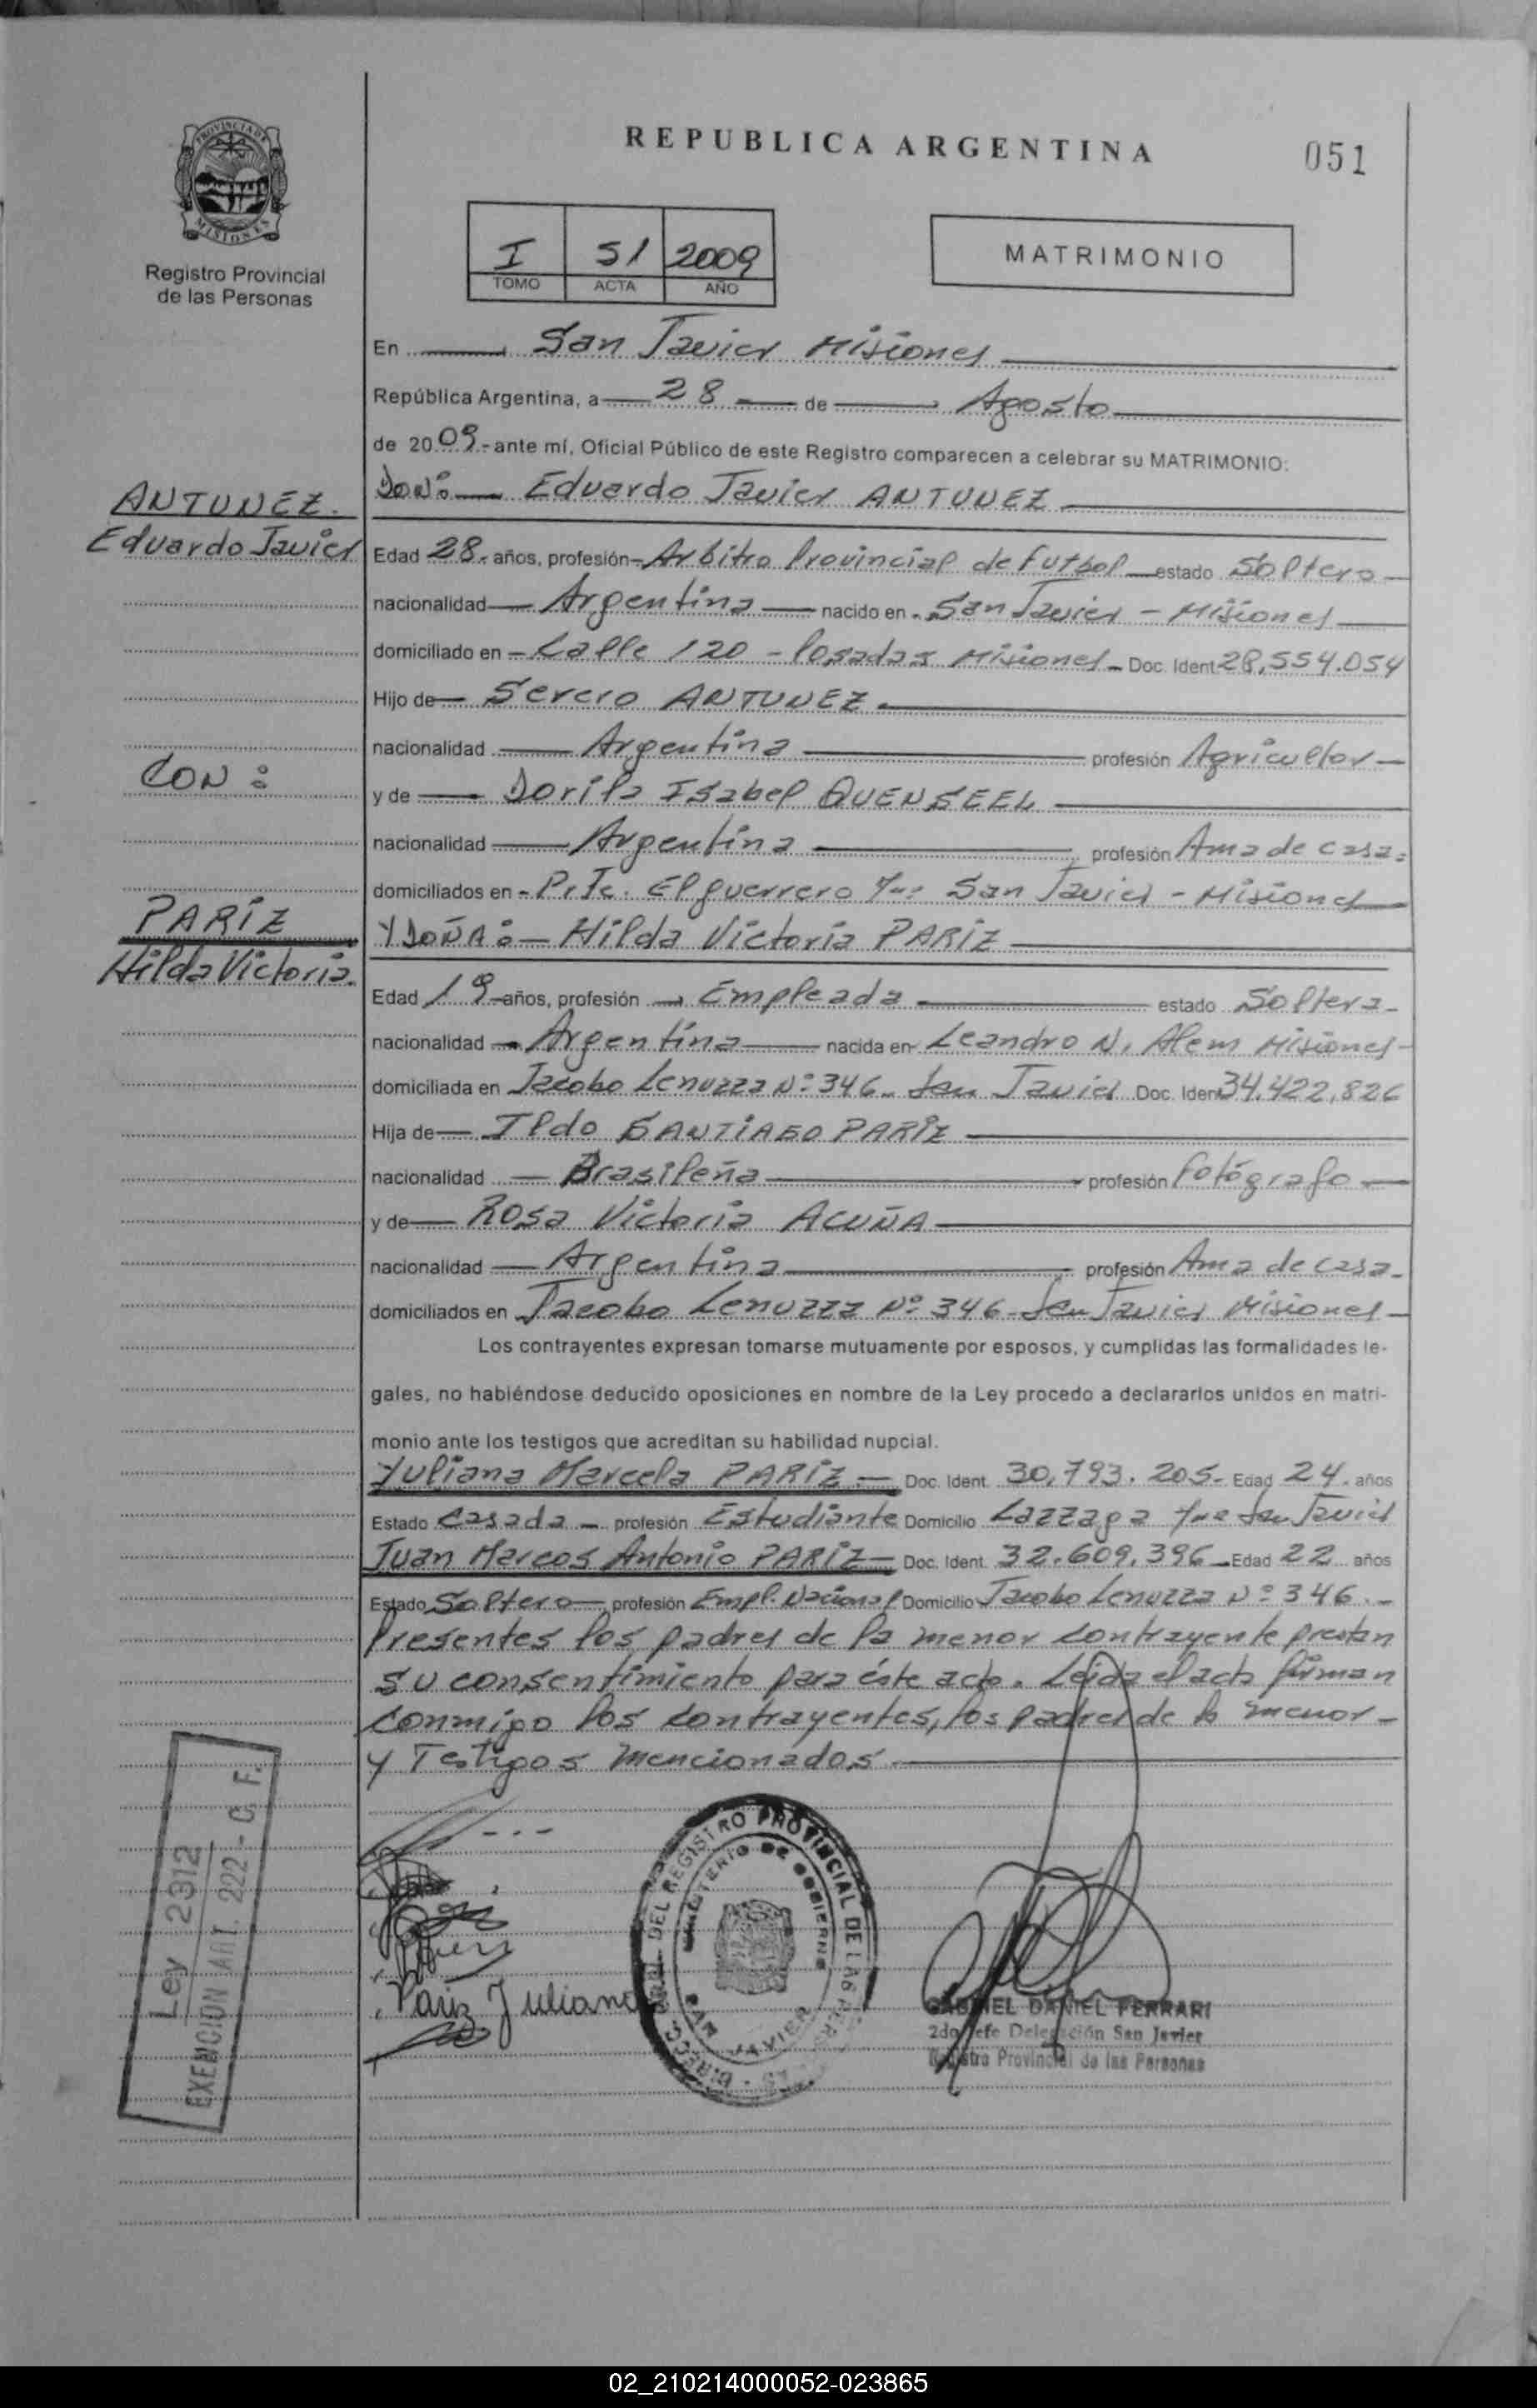 REPUBLICA ARGENTINA
051
PROVINCIA DE
MISIONES
Registro Provincial
de las Personas
I 51 2009
TOMO ACTA AÑO
MATRIMONIO
En San Javier Misiones
República Argentina, a 28 de Agosto
de 2009.- ante mí, Oficial Público de este Registro comparecen a celebrar su MATRIMONIO:
DON: Eduardo Javier ANTUNEZ
ANTUNEZ.
Eduardo Javier
Edad 28.- años, profesión Arbitro Provincial de Futbol estado Soltero
nacionalidad Argentina nacido en San Javier - Misiones
domiciliado en Calle 120 - Posadas Misiones Doc. Ident 28.554.054
Hijo de Severo ANTUNEZ
nacionalidad Argentina profesión Agricultor
CON:
y de Dorila Isabel QUENSEEL
nacionalidad Argentina profesión Ama de casa.
domiciliados en Pje. El guerrero San Javier - Misiones
PARIZ
Hilda Victoria.
Y DOÑA: Hilda Victoria PARIZ
Edad 19 años, profesión Empleada estado Soltera
nacionalidad Argentina nacida en Leandro N. Alem Misiones
domiciliada en Jacobo Lenuzza Nº 346 San Javier Doc. Ident 34.422.826
Hija de Ildo SANTIAGO PARIZ
nacionalidad Brasileña profesión Fotógrafo
y de Rosa Victoria ACUÑA
nacionalidad Argentina profesión Ama de casa
domiciliados en Jacobo Lenuzza Nº 346 San Javier Misiones
Los contrayentes expresan tomarse mutuamente por esposos, y cumplidas las formalidades le-
gales, no habiéndose deducido oposiciones en nombre de la Ley procedo a declararlos unidos en matri-
monio ante los testigos que acreditan su habilidad nupcial.
Yuliana Marcela PARIZ Doc. Ident. 30.793.205- Edad 24 años
Estado Casada profesión Estudiante Domicilio San Javier
Juan Marcos Antonio PARIZ Doc. Ident. 32.609.396 Edad 22 años
Estado Soltero profesión Empl. Nacional Domicilio Jacobo Lenuzza Nº 346.-
Presentes los padres de la menor contrayente prestan
su consentimiento para éste acto. Leida el acta firman
conmigo los contrayentes, los padres de la menor
y Testigos mencionados.
Ley 2912
EXENCION ART. 222 - C. F.
Pariz Juliana
DIRECC. GRAL. DEL REGISTRO PROVINCIAL DE LAS PERS
MINISTERIO DE GOBIERNO
SAN JAVIER
GABRIEL DANIEL FERRARI
2do Jefe Delegación San Javier
Registro Provincial de las Personas
02_210214000052-023865